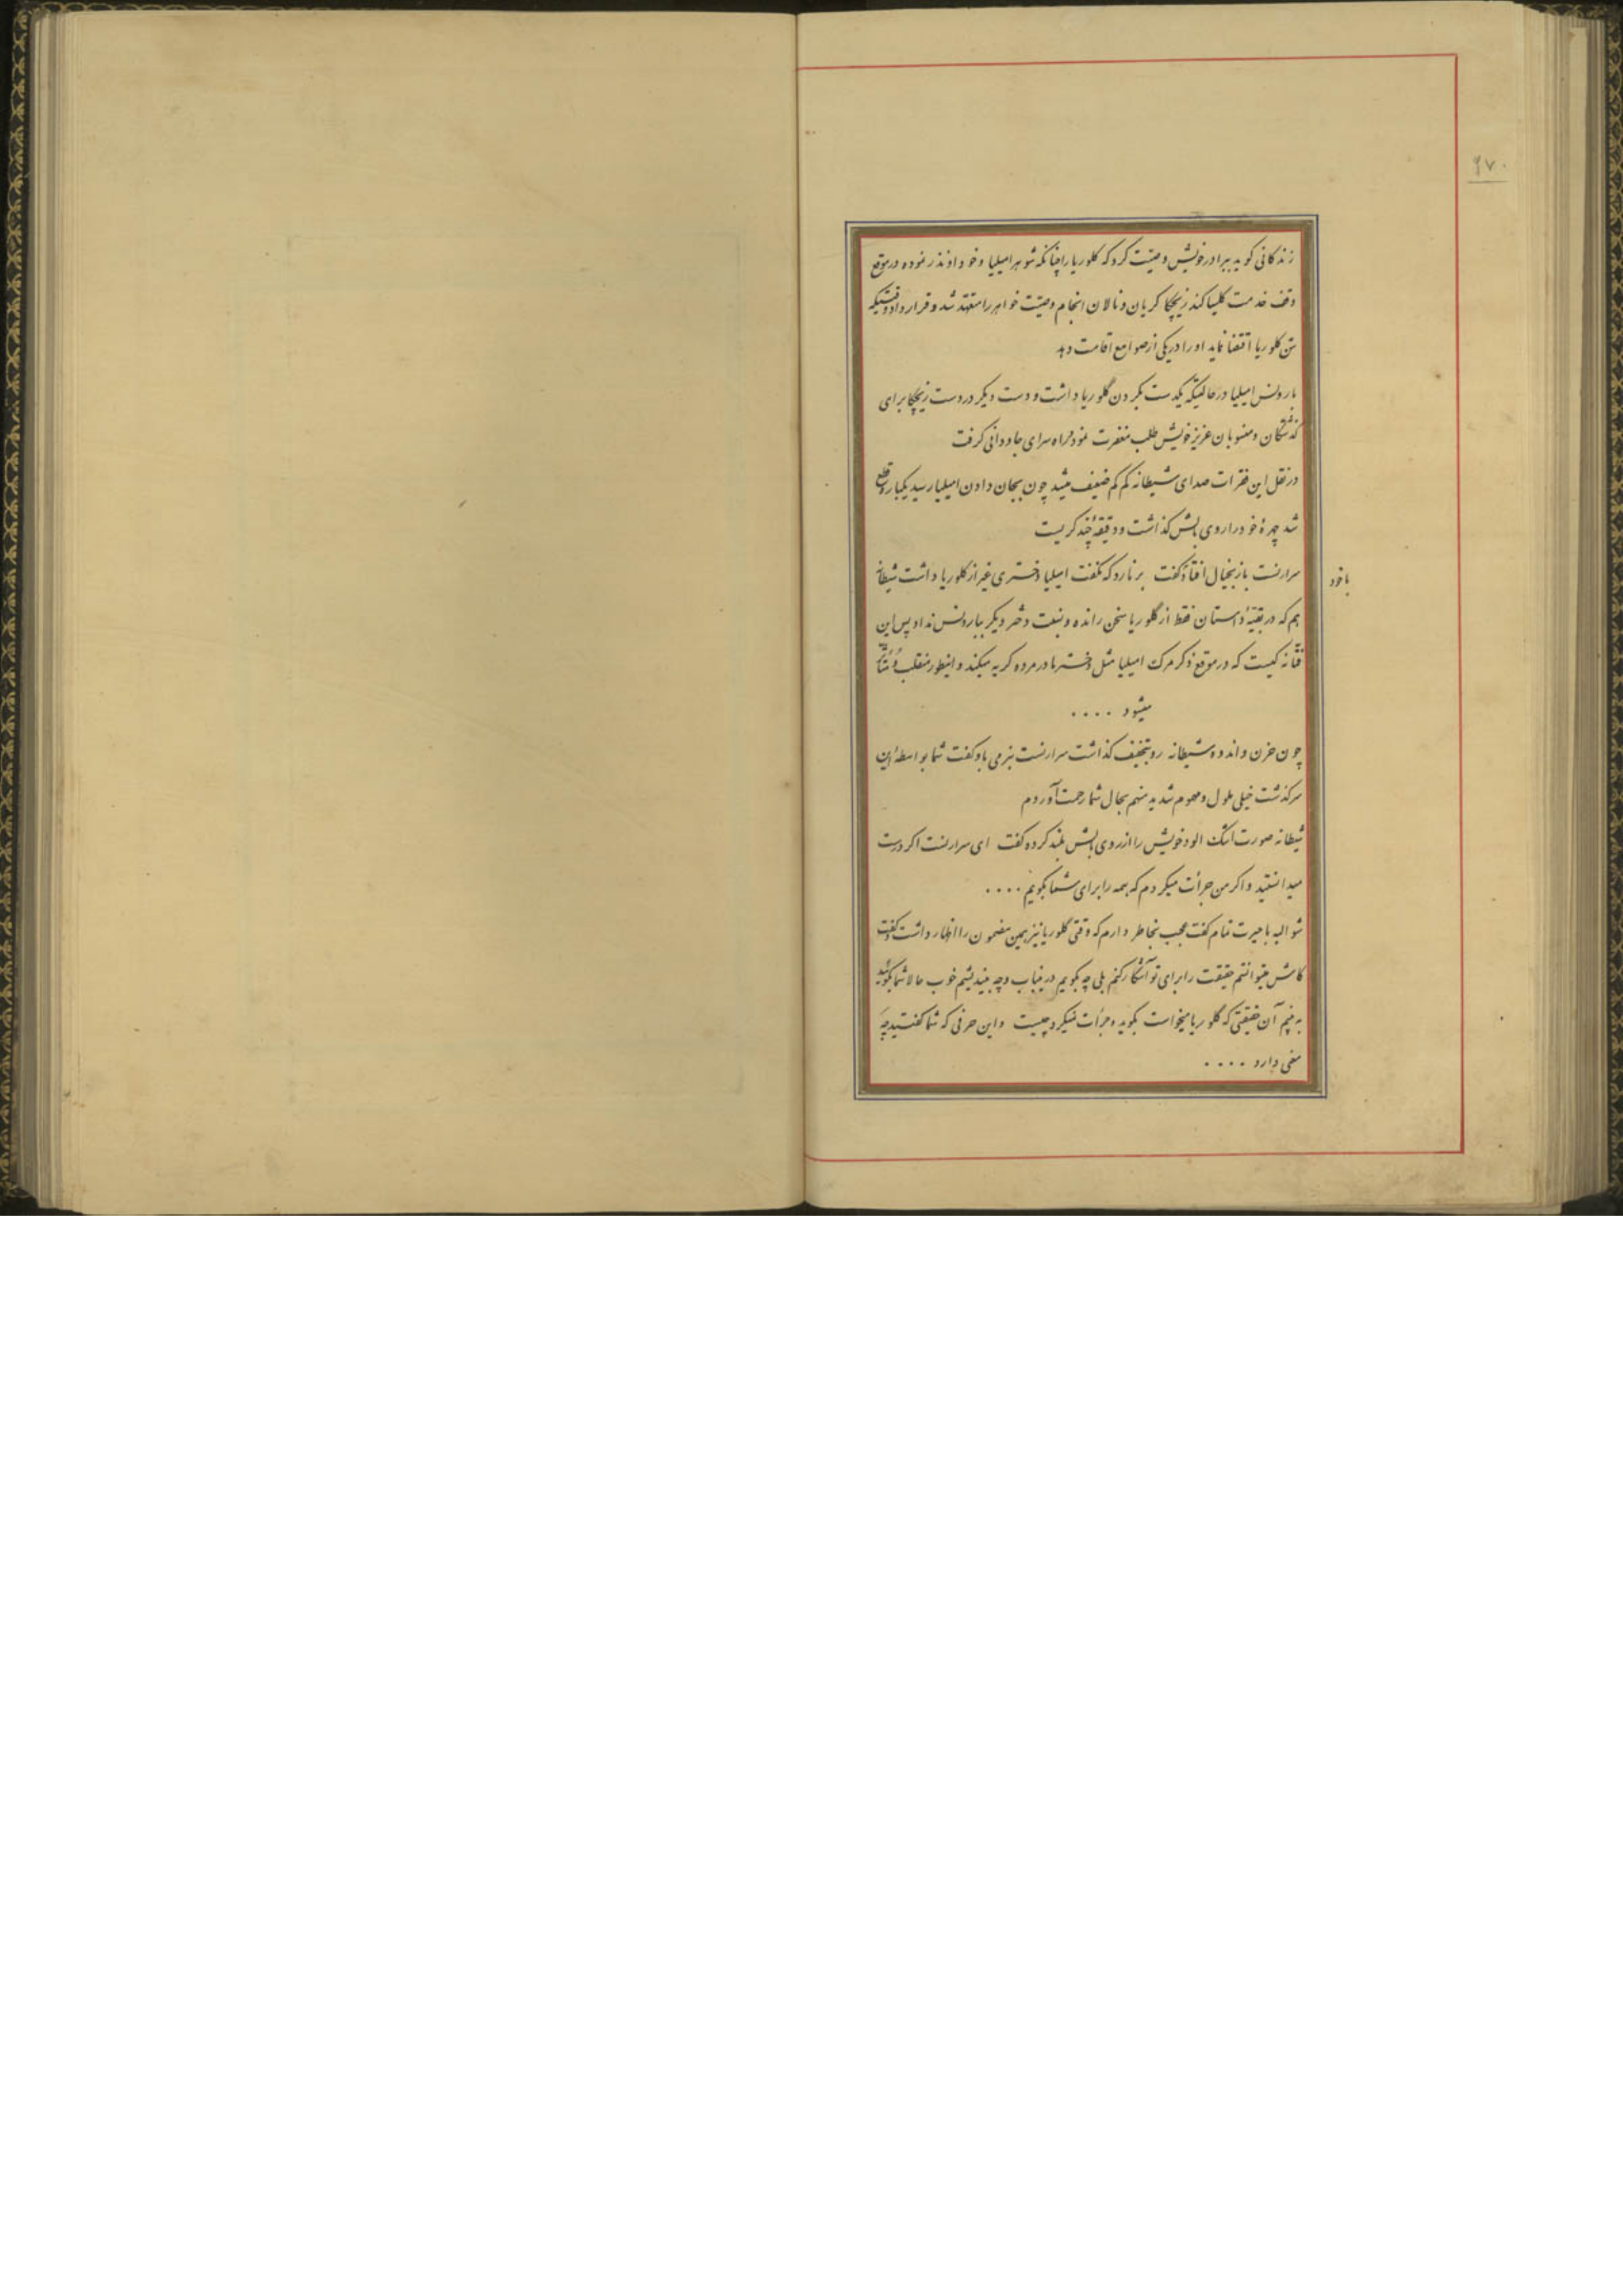 ۶۷۰
زندگانی گوید ببرادر خویش وصیت کرد که گلوریا را چنانکه شوهر امیلیا و خود او نذر نموده در موقع
وقف خدمت کلیسا کند زیچکا گریان و نالان انجام وصیت خواهر را متعهد شد و قرار داد وقتیکه
سن گلوریا اقتضا نماید او را در یکی از صوامع اقامت دهد
بارونس امیلیا در حالتیکه یکدست بگردن گلوریا داشت و دست دیگر در دست زیچکا برای
گذشتگان و منسوبان عزیز خویش طلب مغفرت نمود و راه سرای جاودانی گرفت
در نقل این فقرات صدای شیطانه کم کم ضعیف میشد چون بجان دادن امیلیا رسید یکباره قطع
شد چهرهٔ خود را روی بالش گذاشت و دقیقهٔ چند گریست
سرارنست باز بخیال افتاد گفت برنارد که نگفت امیلیا دختری غیر از گلوریا داشت شیطانه
باخود
هم که در بقیهٔ داستان فقط از گلوریا سخن رانده و نسبت دختر دیگر ببارونس نداد پس این
فتانه کیست که در موقع ذکر مرک امیلیا مثل دختر مادر مرده گریه میکند و اینطور منقلب و متأثر
میشود ....
چون حزن و اندوه شیطانه رو بتخفیف گذاشت سرارنست بنرمی باو گفت شما بواسطهٔ این
سرگذشت خیلی ملول و مهموم شدید منهم بحال شما رحمت آوردم
شیطانه صورت اشک الود خویش را از روی بالش بلند کرده گفت ای سرارنست اگر درست
میدانستید و اگر من جرأت میکردم که همه را برای شما بگویم ....
شوالیه با حیرت تمام گفت عجب بخاطر دارم که وقتی گلوریا نیز همین مضمون را اظهار داشت و گفت
کاش میتوانستم حقیقت را برای تو آشکار کنم بلی چه بگویم در اینباب و چه بیندیشم خوب حالا شما بگوئید
به بینم آن حقیقتی که گلوریا میخواست بگوید و جرأت نمیکرد چیست و این حرفی که شما گفتید چه
معنی دارد ....